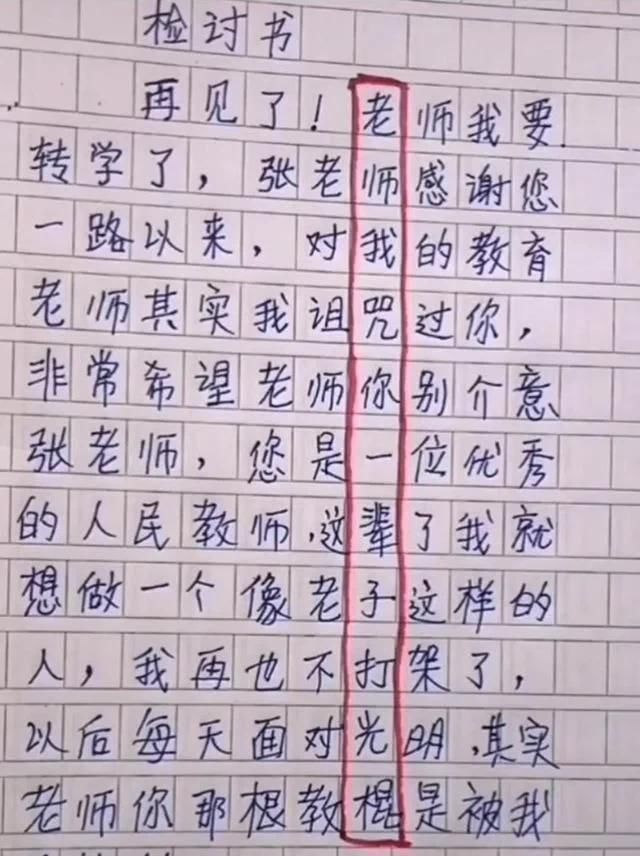 检讨书
再见了!老师我要
转学了,张老师感谢您
一路以来,对我的教育
老师其实我诅咒过你,
非常希望老师你别介意
张老师,您是一位优秀
的人民教师,这辈了我就
想做一个像老子这样的
人,我再也不打架了,
以后每天面对光明,其实
老师你那根教棍是被我